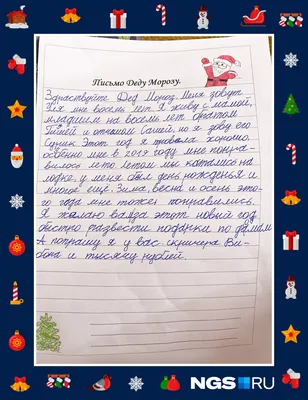 Письмо Деду Морозу.
Здраствуйте Дед Мороз. Меня зовут
мне восемь лет. Я живу с мамой,
младшим на восемь лет братом
и отчимом Сашей, но я зову его
Этот год я провела хорошо.
особенно мне в 2019 году мне понра-
вилось лето летом мы катались на
лодке, у меня был день рожденья и
многое ещё. Зима, весна и осень это-
го года мне тоже понравились.
Я желаю вам в этот новый год
быстро развести подарки по домам.
А попрошу я у вас
и тысячу рублей.
NGS RU